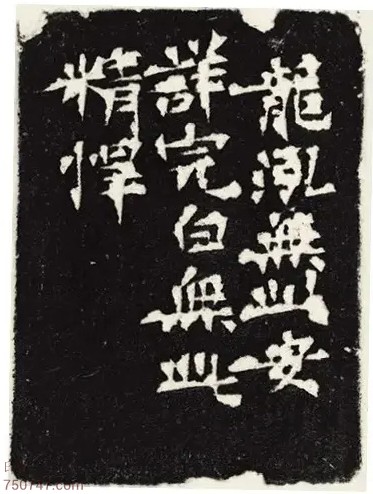 龍泓無此安
詳完白無此
精悍
750747.com